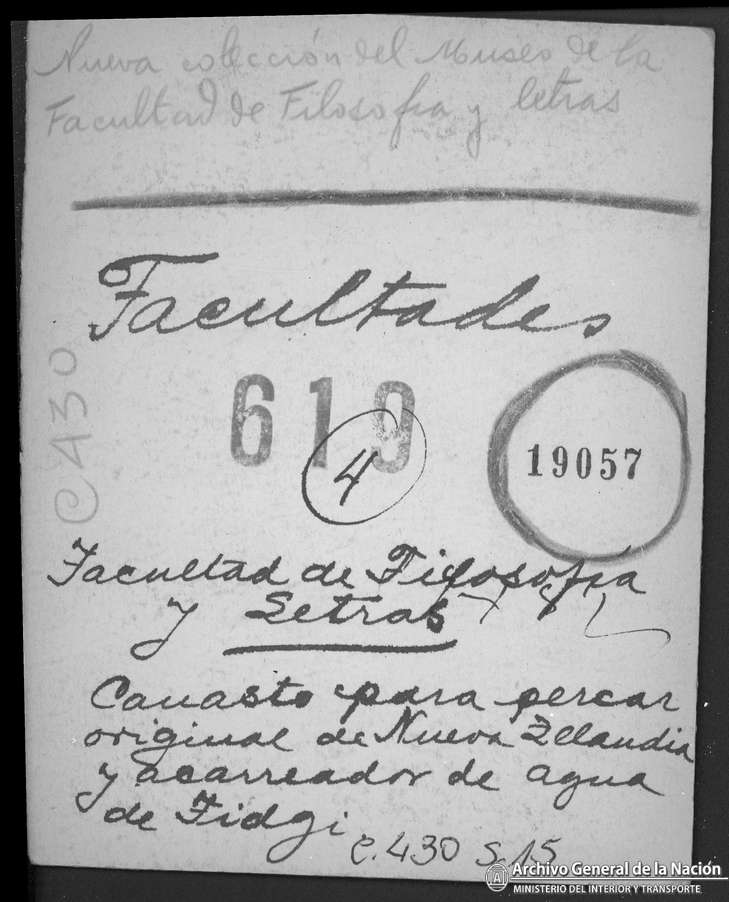 Nueva colección del Museo de la
Facultad de Filosofia y letras
Facultades
C430
619
4
19057
Facultad de Filosofia
y Letras
Canasto para percar
original de Nueva Zelandia
y acarreador de agua
de Fidgi
C.430 S.15
Archivo General de la Nación
MINISTERIO DEL INTERIOR Y TRANSPORTE